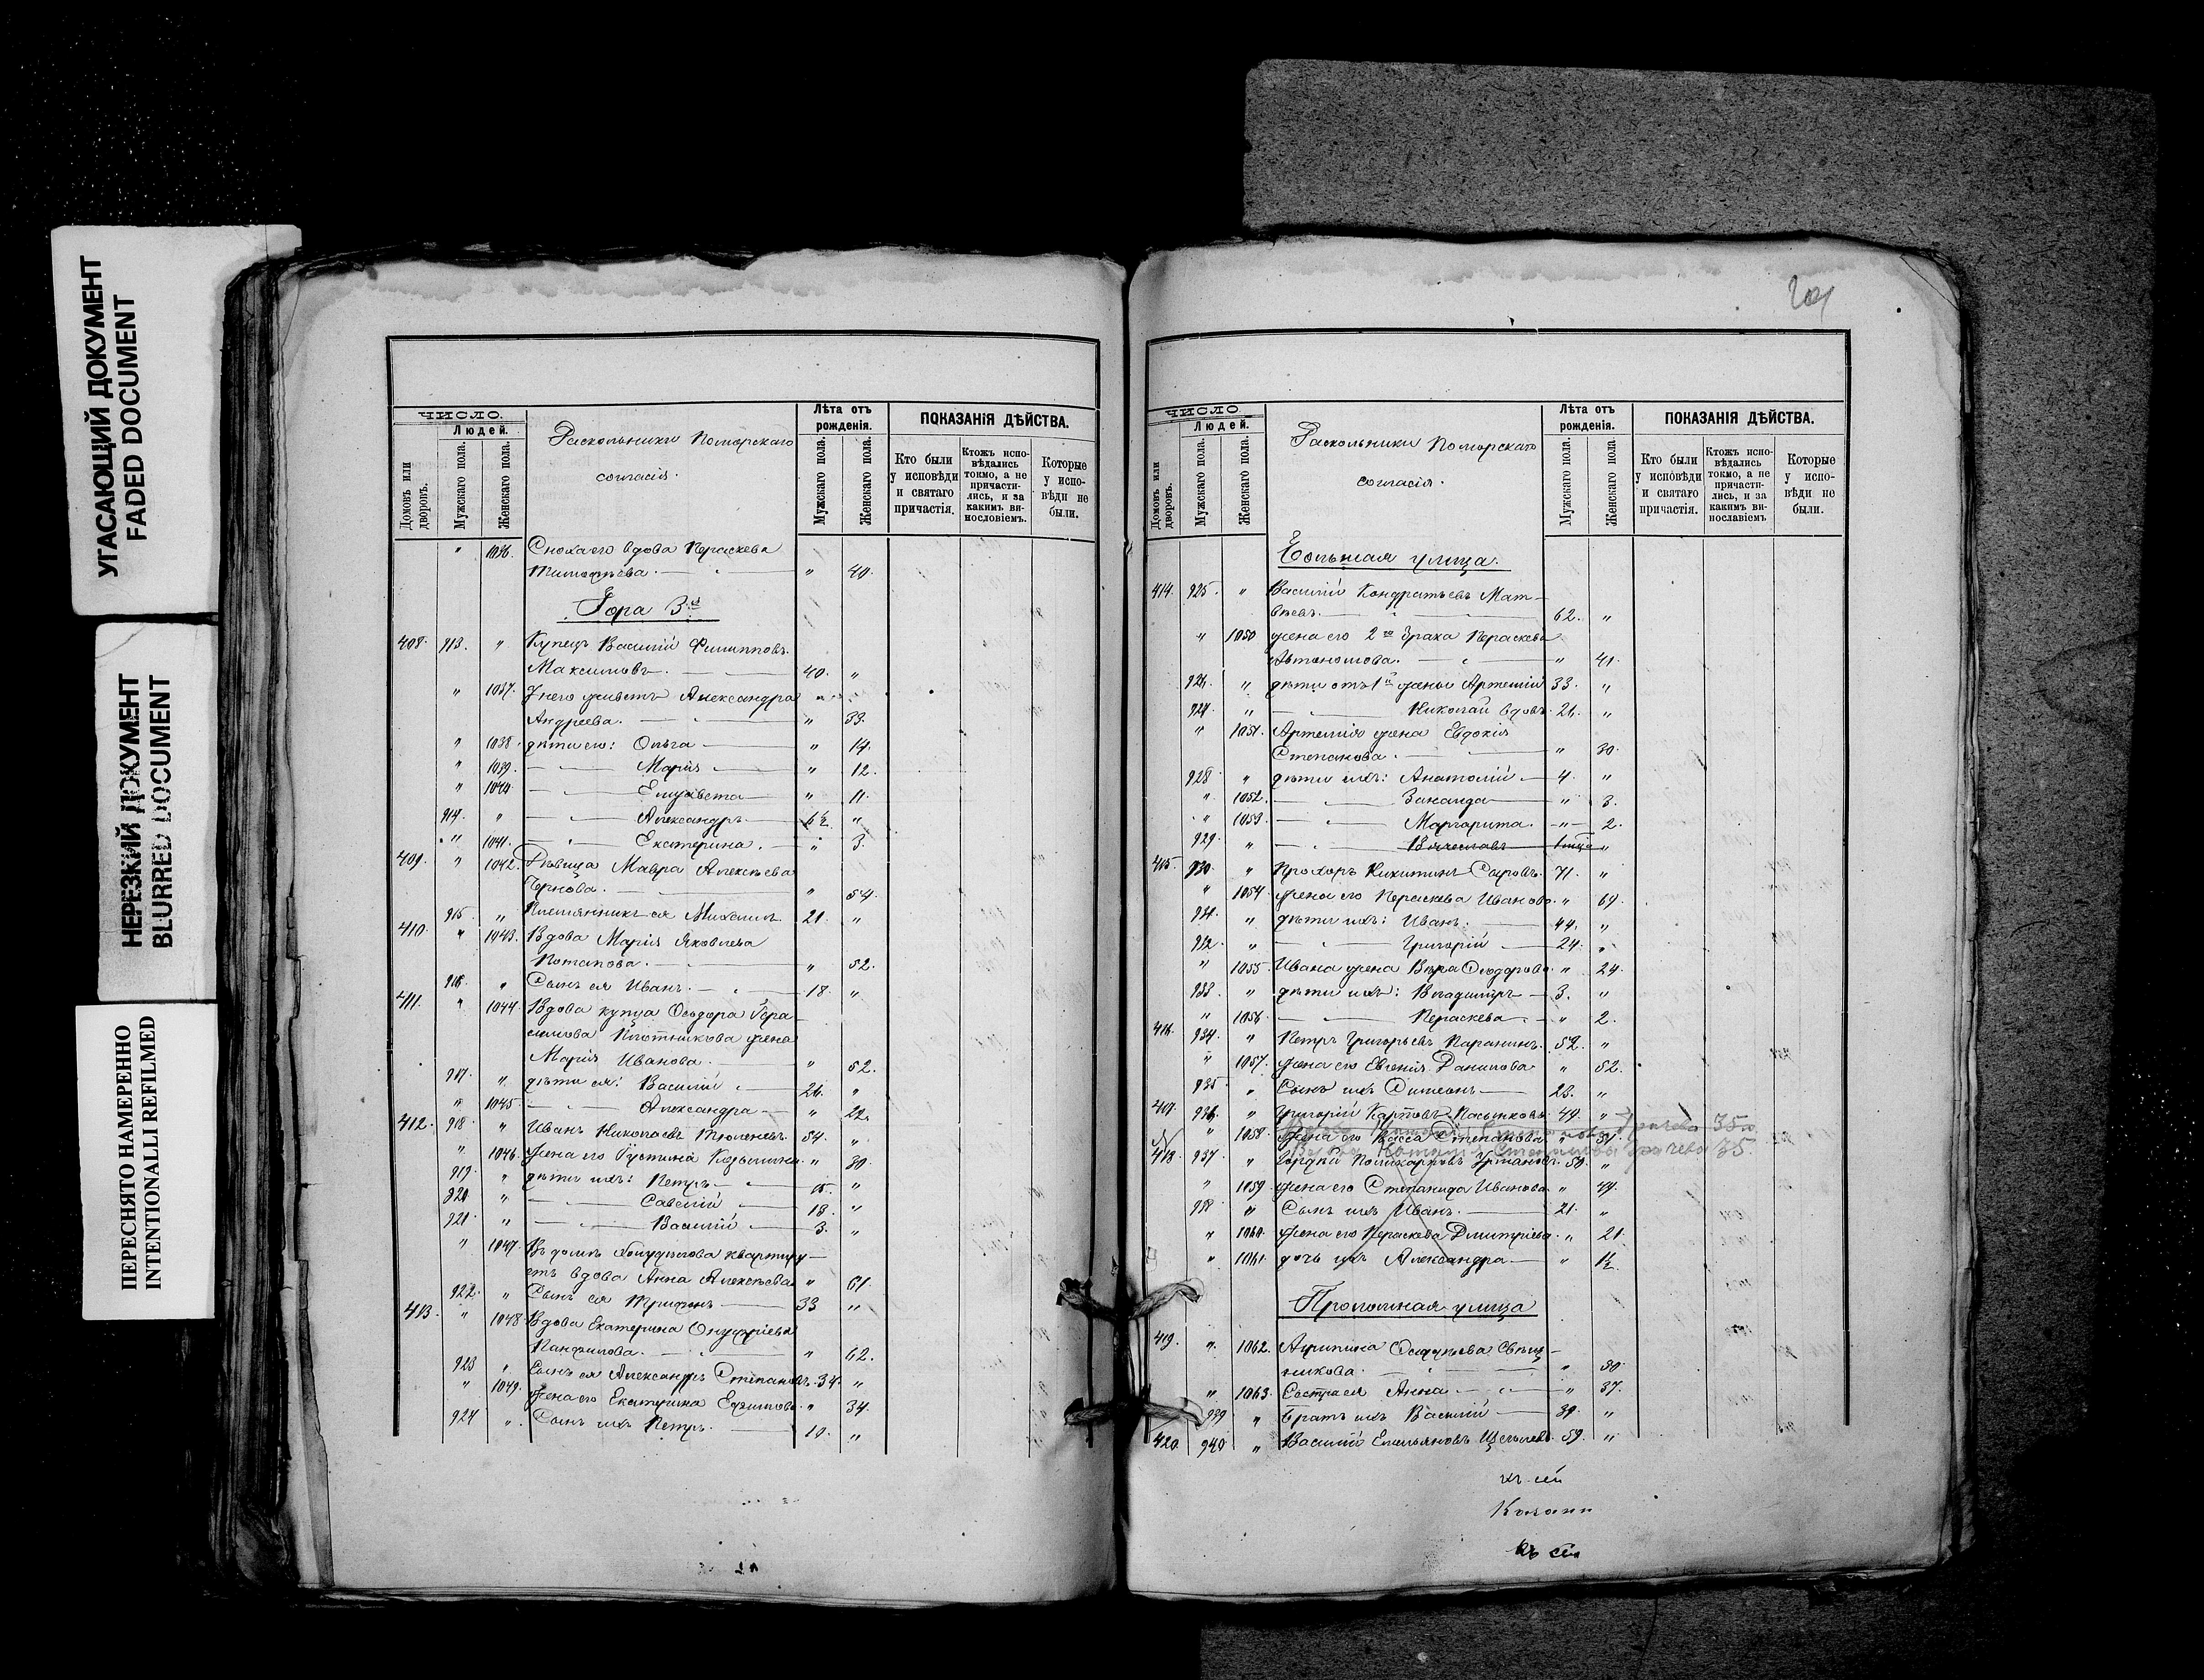 УГАСАЮЩИЙ ДОКУМЕНТ
FADED DOCUMENT
НЕРЕЗКИЙ ДОКУМЕНТ
BLURRED DOCUMENT
ПЕРЕСНЯТО НАМЕРЕННО
INTENTIONALLI REFILMED
ЧИСЛО.
Людей.
Домовъ или дворовъ.
Мужскаго пола.
Женскаго пола.
Раскольники Поморскаго
согласія.
Лѣта отъ рожденія.
Мужскаго пола.
Женскаго пола.
ПОКАЗАНІЯ ДѢЙСТВА.
Кто были у исповѣди и святаго причастія.
Ктожъ исповѣдались токмо, а не причастились, и за какимъ винословіемъ.
Которые у исповѣди не были.
" 1036. Сноха его вдова Параскева
Тимофѣева. " 40.
Гора 3я
408. 913. " Купецъ Василій Филипповъ
Максимовъ. 40. "
" 1037. У него живетъ Александра
Андреева. " 33.
" 1038. дѣти его: Ольга " 14.
" 1039. Марія " 12.
" 1040. Елизавета " 11.
914. " Александръ 6½ "
" 1041. Екатерина. " 3.
409. " 1042. Дѣвица Мавра Алексѣева
" 54.
915. " Племянникъ ея Михаилъ 21. "
410. " 1043. Вдова Марія Яковлева
Потапова. " 52.
916. " Сынъ ея Иванъ. 18. "
411. " 1044. Вдова купца Ѳеодора Гера-
симова Плотникова жена
Марія Иванова. " 52.
917. " дѣти ея: Василій 26. "
" 1045. Александра " 22.
412. 918. " Иванъ Николаевъ Тюленевъ 54. "
" 1046. Жена его Іустина Козьмина " 39.
919. " дѣти ихъ: Петръ 15. "
920. " Савелій 13. "
921. " Василій 3. "
" 1047. Въ домѣ квартиру-
етъ вдова Анна Алексѣева " 61.
922. " Сынъ ея Трифонъ 33 "
413. " 1048. Вдова Екатерина Онуфріева
Панфилова. " 62.
923 " Сынъ ея Александръ Степановъ 34. "
" 1049. Жена его Екатерина Ефимова " 34.
924 " Сынъ ихъ Петръ. 10. "
ЧИСЛО
Людей.
Домовъ или дворовъ.
Мужскаго пола.
Женскаго пола.
Раскольники Поморскаго
согласія.
Лѣта отъ рожденія.
Мужскаго пола.
Женскаго пола
ПОКАЗАНІЯ ДѢЙСТВА.
Кто были у исповѣди и святаго причастія.
Ктожъ исповѣдались токмо, а не причастились, и за какимъ винославіемъ
Которые у исповѣди не были.
Большая улица.
414. 925. " Василій Кондратьевъ Мат-
вѣевъ. 62. "
" 1050 жена его 2го брака Параскева
Автономова. " 41.
926. " дѣти отъ 1й жены Артемій 33. "
927. " Николай вдовъ 26. "
" 1051. Артемія жена Евдокія
Степанова. " 30.
928. " дѣти ихъ: Анатолій 4. "
" 1052. Зинаида " 3.
" 1053. Маргарита. " 2.
929. " Вячеславъ "
415. 930. " Прохоръ Никитинъ Сыровъ. 71. "
" 1054. Жена его Параскева Иванова " 69.
931. " дѣти ихъ: Иванъ 44. "
932. " Григорій 24. "
" 1055. Ивана жена Вѣра Ѳеодорова " 24.
933. " дѣти ихъ: Владиміръ 3. "
" 1056. Параскева. " 2.
416. 934. " Петръ Григорьевъ Паранинъ. 52. "
" 1057. Жена его Евгенія Данилова " 52.
935. " Сынъ ихъ Симеонъ 23. "
417. 936. " Григорій Карповъ Пасынковъ 49. "
" 1058. Жена его Васса Степанова "
418. 937. " Поликарповъ 50. "
" 1059. Жена его Степанида Иванова " 49.
938. " Сынъ ихъ Иванъ. 21. "
" 1060. Жена его Параскева Дмитріева. " 21.
" 1061. дочь ихъ Александра " 1½.
Проломная улица
419. " 1062. Агрипина
никова. "
" 1063. Сестра ея Анна " 37.
939 " Братъ ихъ Василій 39. "
420. 940. " Василій Емельяновъ 59. "